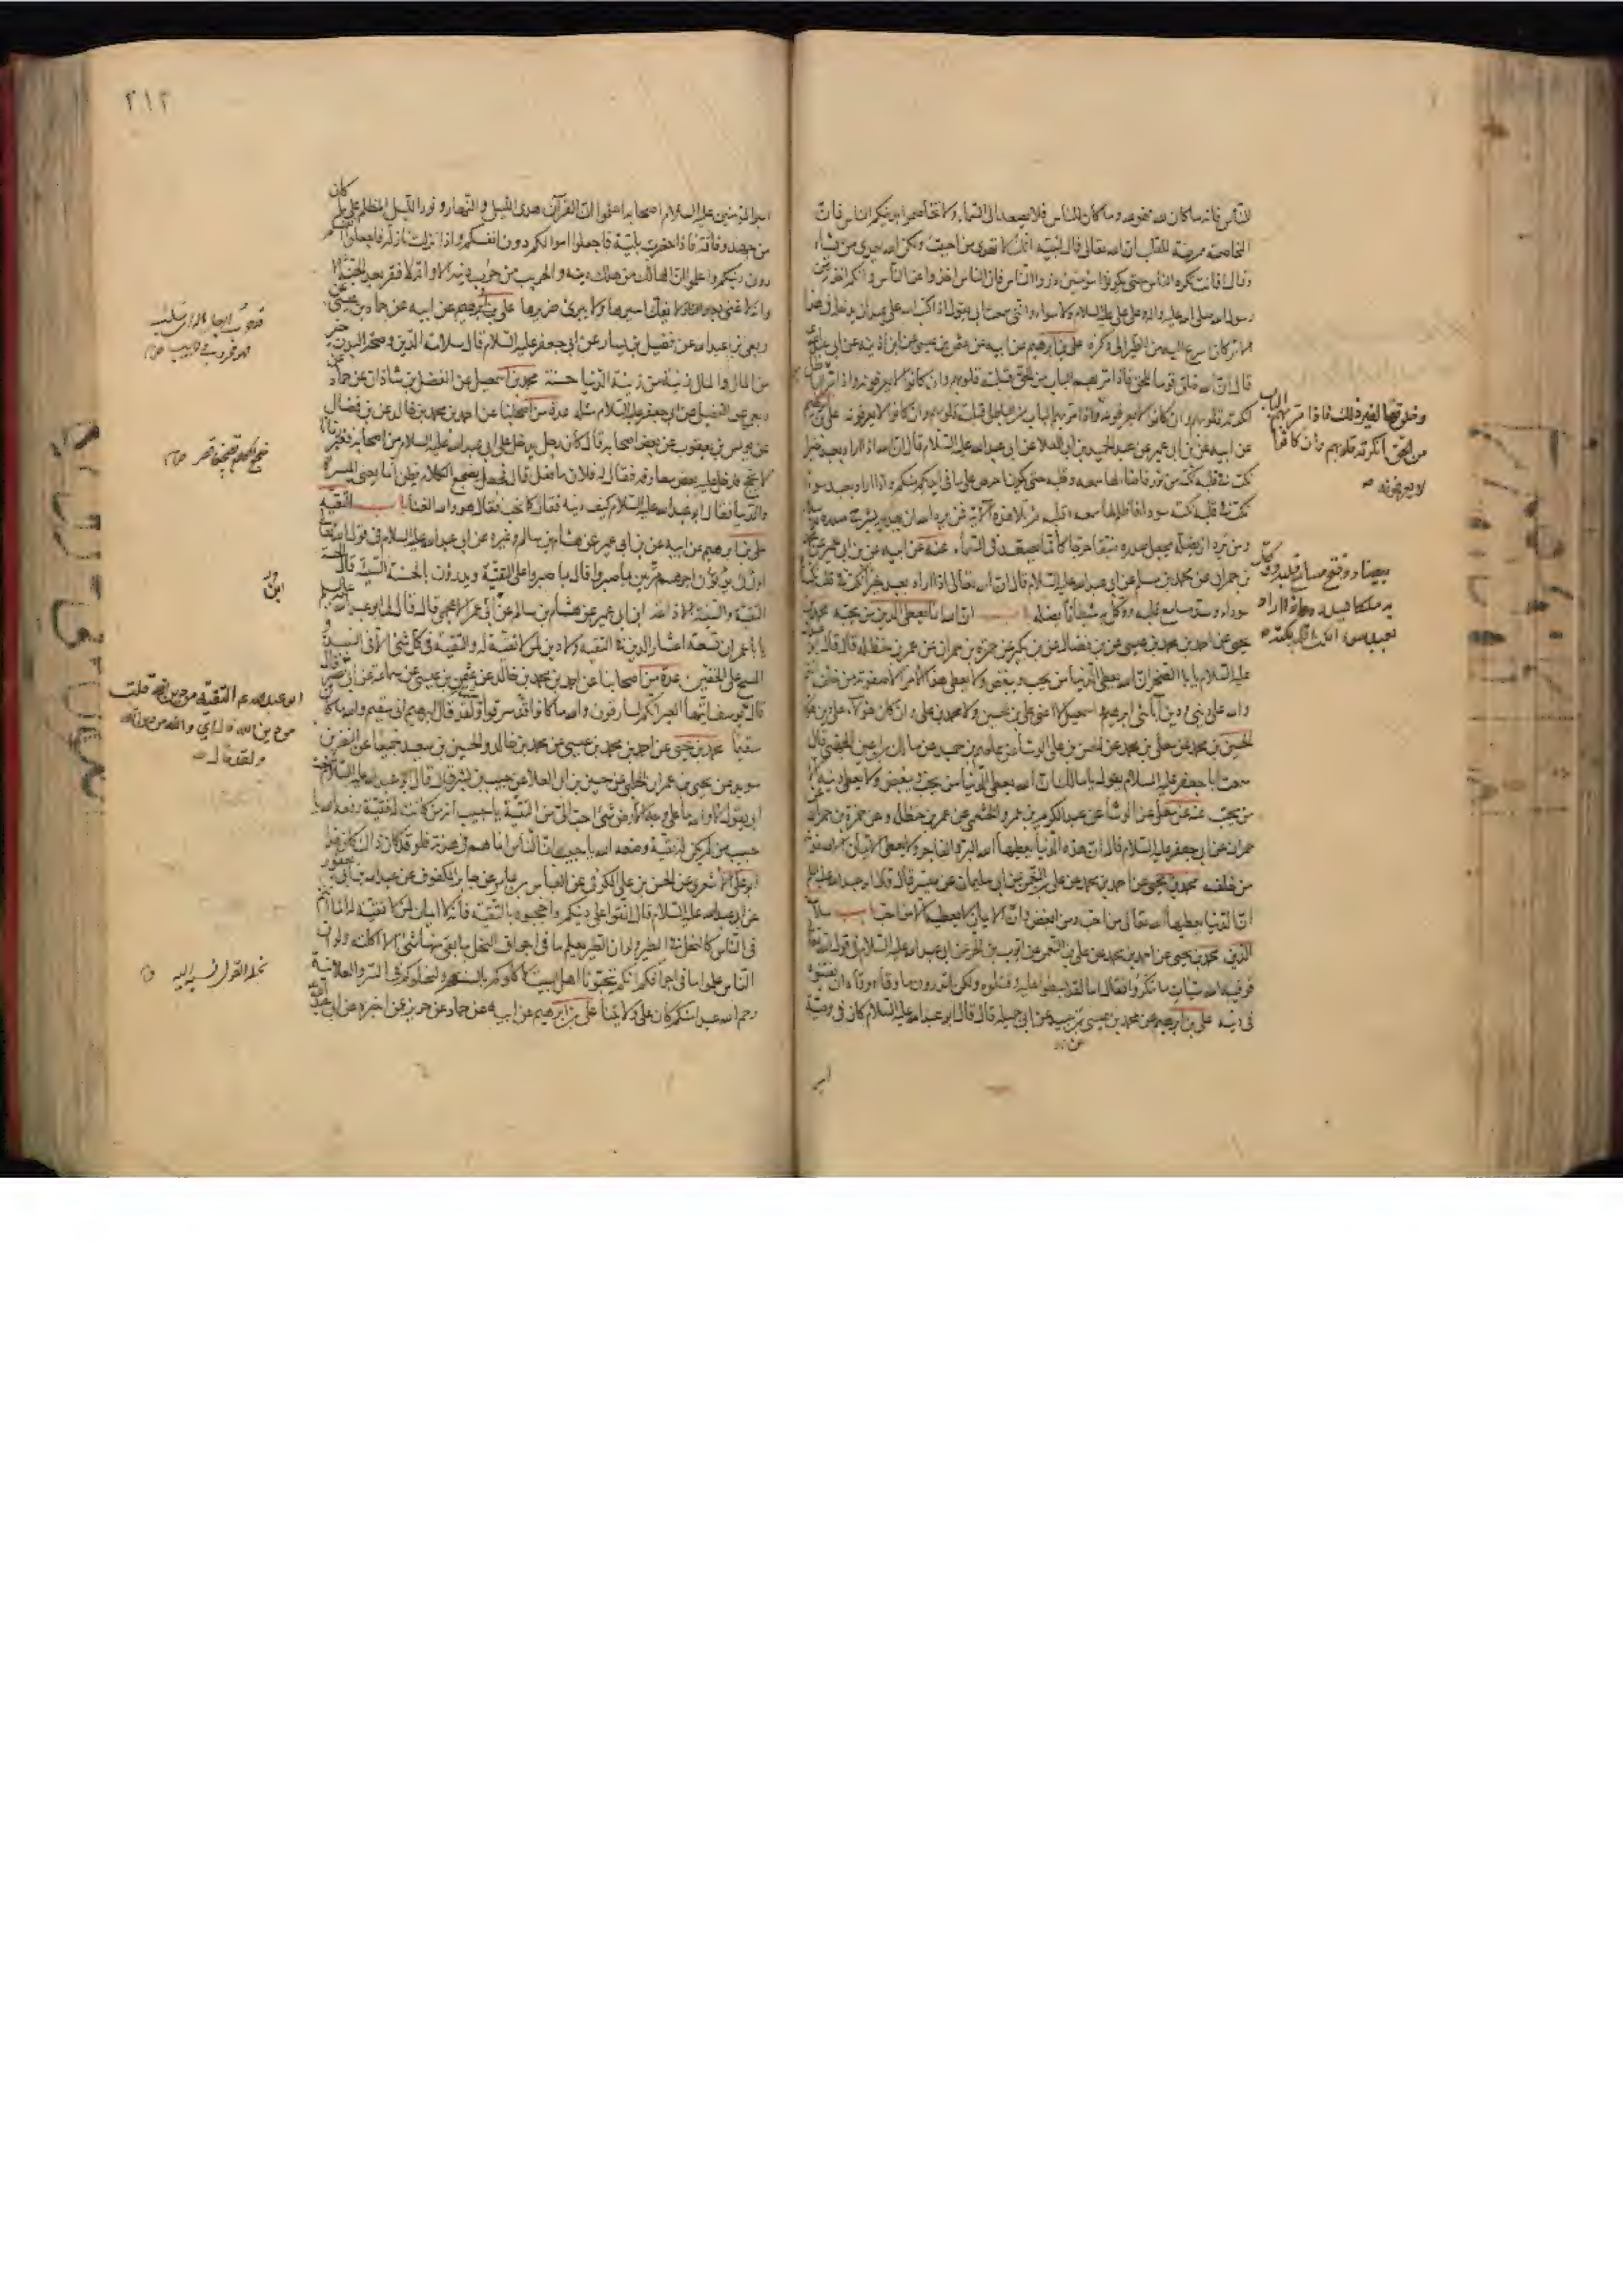 للناس فانه ما كان لله فهو لله وما كان للناس فلا يصعد الى السماء ولا تخاصموا بدينكم الناس فان
المخاصمة ممرضة للقلب ان الله تعالى قال لنبيه انك لا تهدى من احببت ولكن الله يهدى من يشاء
وقال افانت تكره الناس حتى يكونوا مؤمنين ذروا الناس فان الناس اخذوا عن الناس وانكم اخذتم عن
رسول الله صلى الله عليه واله وعلى على عليه السلام ولا سواء وانى سمعت ابى يقول اذا كتب الله على عبد ان يدخله فى هذا
الامر كان اسرع اليه من الطير الى وكره على بن ابرهيم عن ابيه عن عثمن بن عيسى عن ابن اذينه عن ابى عبد الله
قال ان الله خلق قوما للحق فاذا مر بهم الباب من الحق قبلته قلوبهم وان كانوا لا يعرفونه واذا مر بهم الباطل
انكرته قلوبهم وان كانوا لا يعرفونه
عن ابيه عن بن ابى عمير عن عبد الحميد بن ابى العلا عن ابى عبد الله عليه السلام قال ان الله اذا اراد بعبد خيرا
نكت فى قلبه نكتة من نور فاضاء لها سمعه وقلبه حتى يكون احرص على ما فى ايديكم منكم واذا اراد بعبد سوءا
نكت فى قلبه نكتة سوداء فاظلم لها سمعه وقلبه ثم تلا هذه الآية فمن يرد الله ان يهديه يشرح صدره
ومن يرد ان يضله يجعل صدره ضيقا حرجا كانما يصعد فى السماء عنه عن ابيه عن بن ابى عمير عن
بن حمران عن محمد بن مسلم عن ابى عبد الله عليه السلام قال ان الله تعالى اذا اراد بعبد خيرا نكت فى قلبه نكتة
سوداء وسد مسامع قلبه ووكل به شيطانا يضله باب ان الله انما يعطى الدين من يحبه محمد بن
يحيى عن احمد بن محمد بن عيسى عن بن فضال عن بن بكير عن حمزة بن حمران عن عمر بن حنظله قال قال
عليه السلام يا ابا الصخر ان الله يعطى الدنيا من يحب ويبغض ولا يعطى هذا الامر الا صفوته من خلقه
والله على دينى ودين آبائى ابرهيم واسمعيل لا اعنى على بن الحسين ولا محمد بن على وان كان هؤلاء على دين هؤلاء
الحسين بن محمد عن معلى بن محمد عن الحسن بن على الوشاء عن عاصم بن حميد عن مالك بن اعين الجهنى قال
سمعت ابا جعفر عليه السلام يقول يا مالك ان الله يعطى الدنيا من يحب ويبغض ولا يعطى دينه الا
من يحب عنه عن معلى عن الوشاء عن عبد الكريم بن عمرو الخثعمى عن عمر بن حنظله وعن حمزة بن حمران
حمران عن ابى جعفر عليه السلام قال ان هذه الدنيا يعطيها الله البر والفاجر ولا يعطى الايمان الا صفوته
من خلقه محمد بن يحيى عن احمد بن محمد عن على بن النعمن عن ابى سليمان عن ميسر قال قال ابو عبد الله عليه السلام
ان الدنيا يعطيها الله تعالى من احب ومن ابغض وان الايمان لا يعطيه الا من احب باب سلامة
الدين محمد بن يحيى عن احمد بن محمد عن على بن النعمن عن ايوب بن الحر عن ابى عبد الله عليه السلام فى قوله تعالى
فوقيه الله سيئات ما مكروا فقال اما لقد بسطوا عليه وقتلوه ولكن اتدرون ما وقاه وقاه ان يفتنوه
فى دينه على بن ابرهيم عن محمد بن عيسى بن عبيد عن ابى جميله قال قال ابو عبد الله عليه السلام كان فى وصية
امير
وخلق قوما لغير ذلك فاذا مر بهم الباب
من الحق انكرته قلوبهم وان كانوا
لا يعرفونه
بيضاء وفتح مسامع قلبه ووكل
به ملكا يسدده واذا اراد
بعبد سوءا نكت فى قلبه نكتة
٢١٢
امير المؤمنين عليه السلام اصحابه اعلموا ان القرآن هدى الليل والنهار ونور الليل المظلم على ما كان
من جهد وفاقة فاذا حضرت بلية فاجعلوا اموالكم دون انفسكم واذا نزلت نازلة فاجعلوا انفسكم
دون دينكم واعلموا ان الهالك من هلك دينه والحريب من حرب دينه الا وانه لا فقر بعد الجنة الا
وانه لا غنى بعد النار لا يفك اسيرها ولا يبرئ ضريرها على بن ابرهيم عن ابيه عن حماد بن عيسى عن
ربعى بن عبد الله عن فضيل بن يسار عن ابى جعفر عليه السلام قال سلامة الدين وصحة البدن خير
من المال والمال زينة من زينة الدنيا حسنة محمد بن اسمعيل عن الفضل بن شاذان عن حماد عن
ربعى عن الفضيل عن ابى جعفر عليه السلام مثله عدة من اصحابنا عن احمد بن محمد بن خالد عن بن فضال
عن يونس بن يعقوب عن بعض اصحابه قال كان رجل يدخل على ابى عبد الله عليه السلام من اصحابه فغبر زمانا
لا يحج فدخل عليه بعض معارفه فقال له فلان ما فعل قال فجعل يضجع الكلام يظن انما يعنى الميسرة
والدنيا فقال ابو عبد الله عليه السلام كيف دينه فقال كما تحب فقال هو والله الغنا باب التقية
على بن ابرهيم عن ابيه عن بن ابى عمير عن هشام بن سالم وغيره عن ابى عبد الله عليه السلام فى قول الله تعالى
اولئك يؤتون اجرهم مرتين بما صبروا قال بما صبروا على التقية ويدرؤن بالحسنة السيئة قال الحسنة
التقية والسيئة الاذاعة ابن ابى عمير عن هشام بن سالم عن ابى عمر الاعجمى قال قال لى ابو عبد الله عليه السلم
يا با عمر ان تسعة اعشار الدين فى التقية ولا دين لمن لا تقية له والتقية فى كل شئ الا فى النبيذ و
المسح على الخفين عدة من اصحابنا عن احمد بن محمد بن خالد عن عثمن بن عيسى عن سماعة عن ابى بصير قال
قال يوسف ايتها العير انكم لسارقون والله ما كانوا سرقوا ولقد قال ابرهيم انى سقيم والله ما كان
سقيما محمد بن يحيى عن احمد بن محمد بن عيسى عن محمد بن خالد والحسين بن سعيد جميعا عن النضر بن
سويد عن يحيى بن عمران الحلبى عن حسين بن ابى العلا عن حبيب بن بشر قال قال ابو عبد الله عليه السلام سمعت
ابى يقول لا والله ما على وجه الارض شئ احب الى من التقية يا حبيب انه من كانت له تقية رفعه الله يا
حبيب من لم يكن له تقية وضعه الله يا حبيب ان الناس انما هم فى هدنة فلو قد كان ذلك كان هذا
ابو على الاشعرى عن الحسن بن على الكوفى عن العباس بن عامر عن جابر المكفوف عن عبد الله بن ابى يعفور
عن ابى عبد الله عليه السلام قال اتقوا على دينكم واحجبوه بالتقية فانه لا ايمان لمن لا تقية له انما انتم
فى الناس كالنحل فى الطير ولو ان الطير يعلم ما فى اجواف النحل ما بقى منها شئ الا اكلته ولو ان
الناس علموا ما فى اجوافكم انكم تحبونا اهل البيت لاكلوكم بالسنتهم ولنحلوكم فى السر والعلانية
رحم الله عبدا منكم كان على ولايتنا على بن ابرهيم عن ابيه عن حماد عن حريز عن اخبره عن ابى عبد الله
ابو عبد الله عم التقية من دين الله قلت
من دين الله قال اي والله من دين الله
ولقد قال
نحله القول نسبه اليه